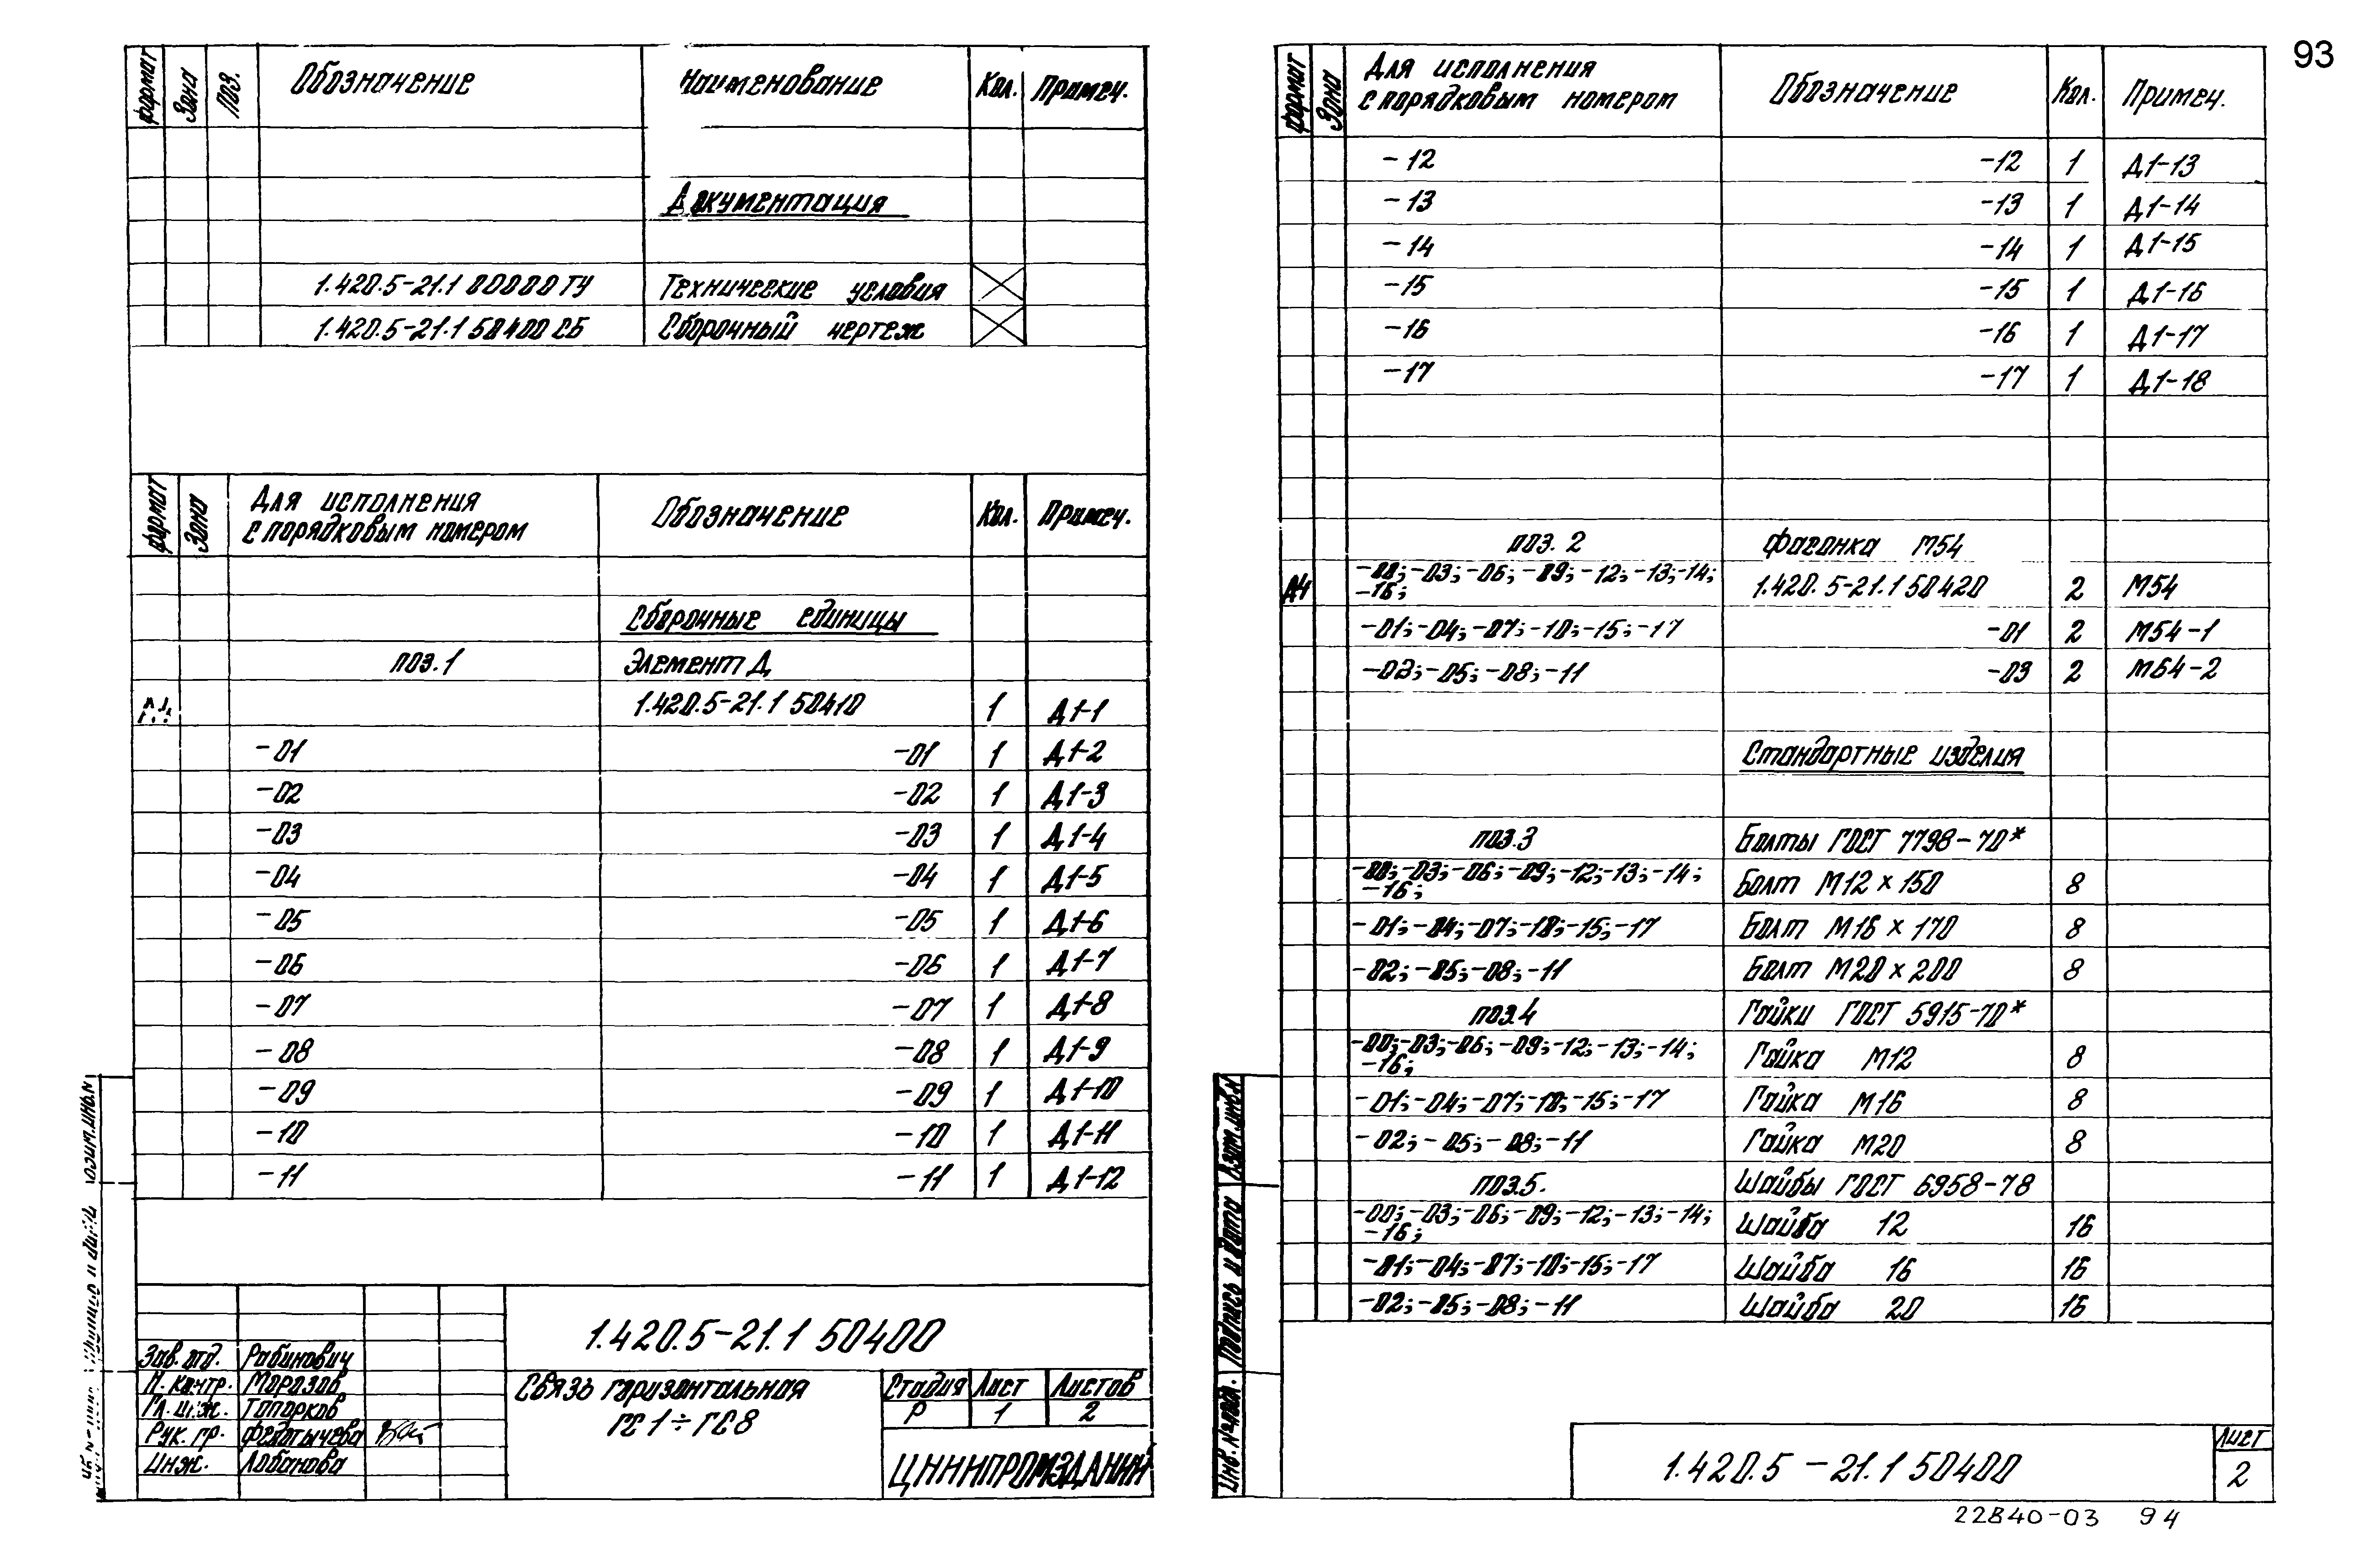 93
формат Зона Поз. Обозначение Наименование Кол. Примеч.
Документация
1.420.5-21.1 00000 ТУ Технические условия
1.420.5-21.1 50400 СБ Сборочный чертеж
формат Зона Для исполнения с порядковым номером Обозначение Кол. Примеч.
Сборочные единицы
поз. 1 Элемент Д
1.420.5-21.1 50410 1 Д1-1
-01 -01 1 Д1-2
-02 -02 1 Д1-3
-03 -03 1 Д1-4
-04 -04 1 Д1-5
-05 -05 1 Д1-6
-06 -06 1 Д1-7
-07 -07 1 Д1-8
-08 -08 1 Д1-9
-09 -09 1 Д1-10
-10 -10 1 Д1-11
-11 -11 1 Д1-12
1.420.5-21.1 50400
Зав. отд. Рабинович
Н. контр. Морозов
Гл. инж. Топорков
Рук. гр. Федотычева
Инж. Лобанова
Связь горизонтальная
ГС1÷ГС8
Стадия Лист Листов
Р 1 2
ЦНИИПРОМЗДАНИЙ
формат Зона Для исполнения с порядковым номером Обозначение Кол. Примеч.
-12 -12 1 Д1-13
-13 -13 1 Д1-14
-14 -14 1 Д1-15
-15 -15 1 Д1-16
-16 -16 1 Д1-17
-17 -17 1 Д1-18
поз. 2 Фасонка М54
А4 -00; -03; -06; -09; -12; -13; -14;
-16; 1.420.5-21.1 50420 2 М54
-01; -04; -07; -10; -15; -17 -01 2 М54-1
-02; -05; -08; -11 -03 2 М54-2
Стандартные изделия
поз. 3 Болты ГОСТ 7798-70*
-00; -03; -06; -09; -12; -13; -14;
-16; Болт М12 × 150 8
-01; -04; -07; -10; -15; -17 Болт М16 × 170 8
-02; -05; -08; -11 Болт М20 × 200 8
поз. 4 Гайки ГОСТ 5915-70*
-00; -03; -06; -09; -12; -13; -14;
-16; Гайка М12 8
-01; -04; -07; -10; -15; -17 Гайка М16 8
-02; -05; -08; -11 Гайка М20 8
поз. 5. Шайбы ГОСТ 6958-78
-00; -03; -06; -09; -12; -13; -14;
-16; Шайба 12 16
-01; -04; -07; -10; -15; -17 Шайба 16 16
-02; -05; -08; -11 Шайба 20 16
Инв. № подл. Подпись и дата Взам. инв. №
1.420.5-21.1 50400
Лист
2
22840-03 94